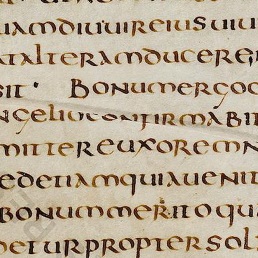 uamdiuuireiusuiu
atalteramducereni
sit · Bonumergoc
ngelioconfirmabit
mittereuxoremn
edetiamquiauenit
bonummeritoqu
deturproptersol